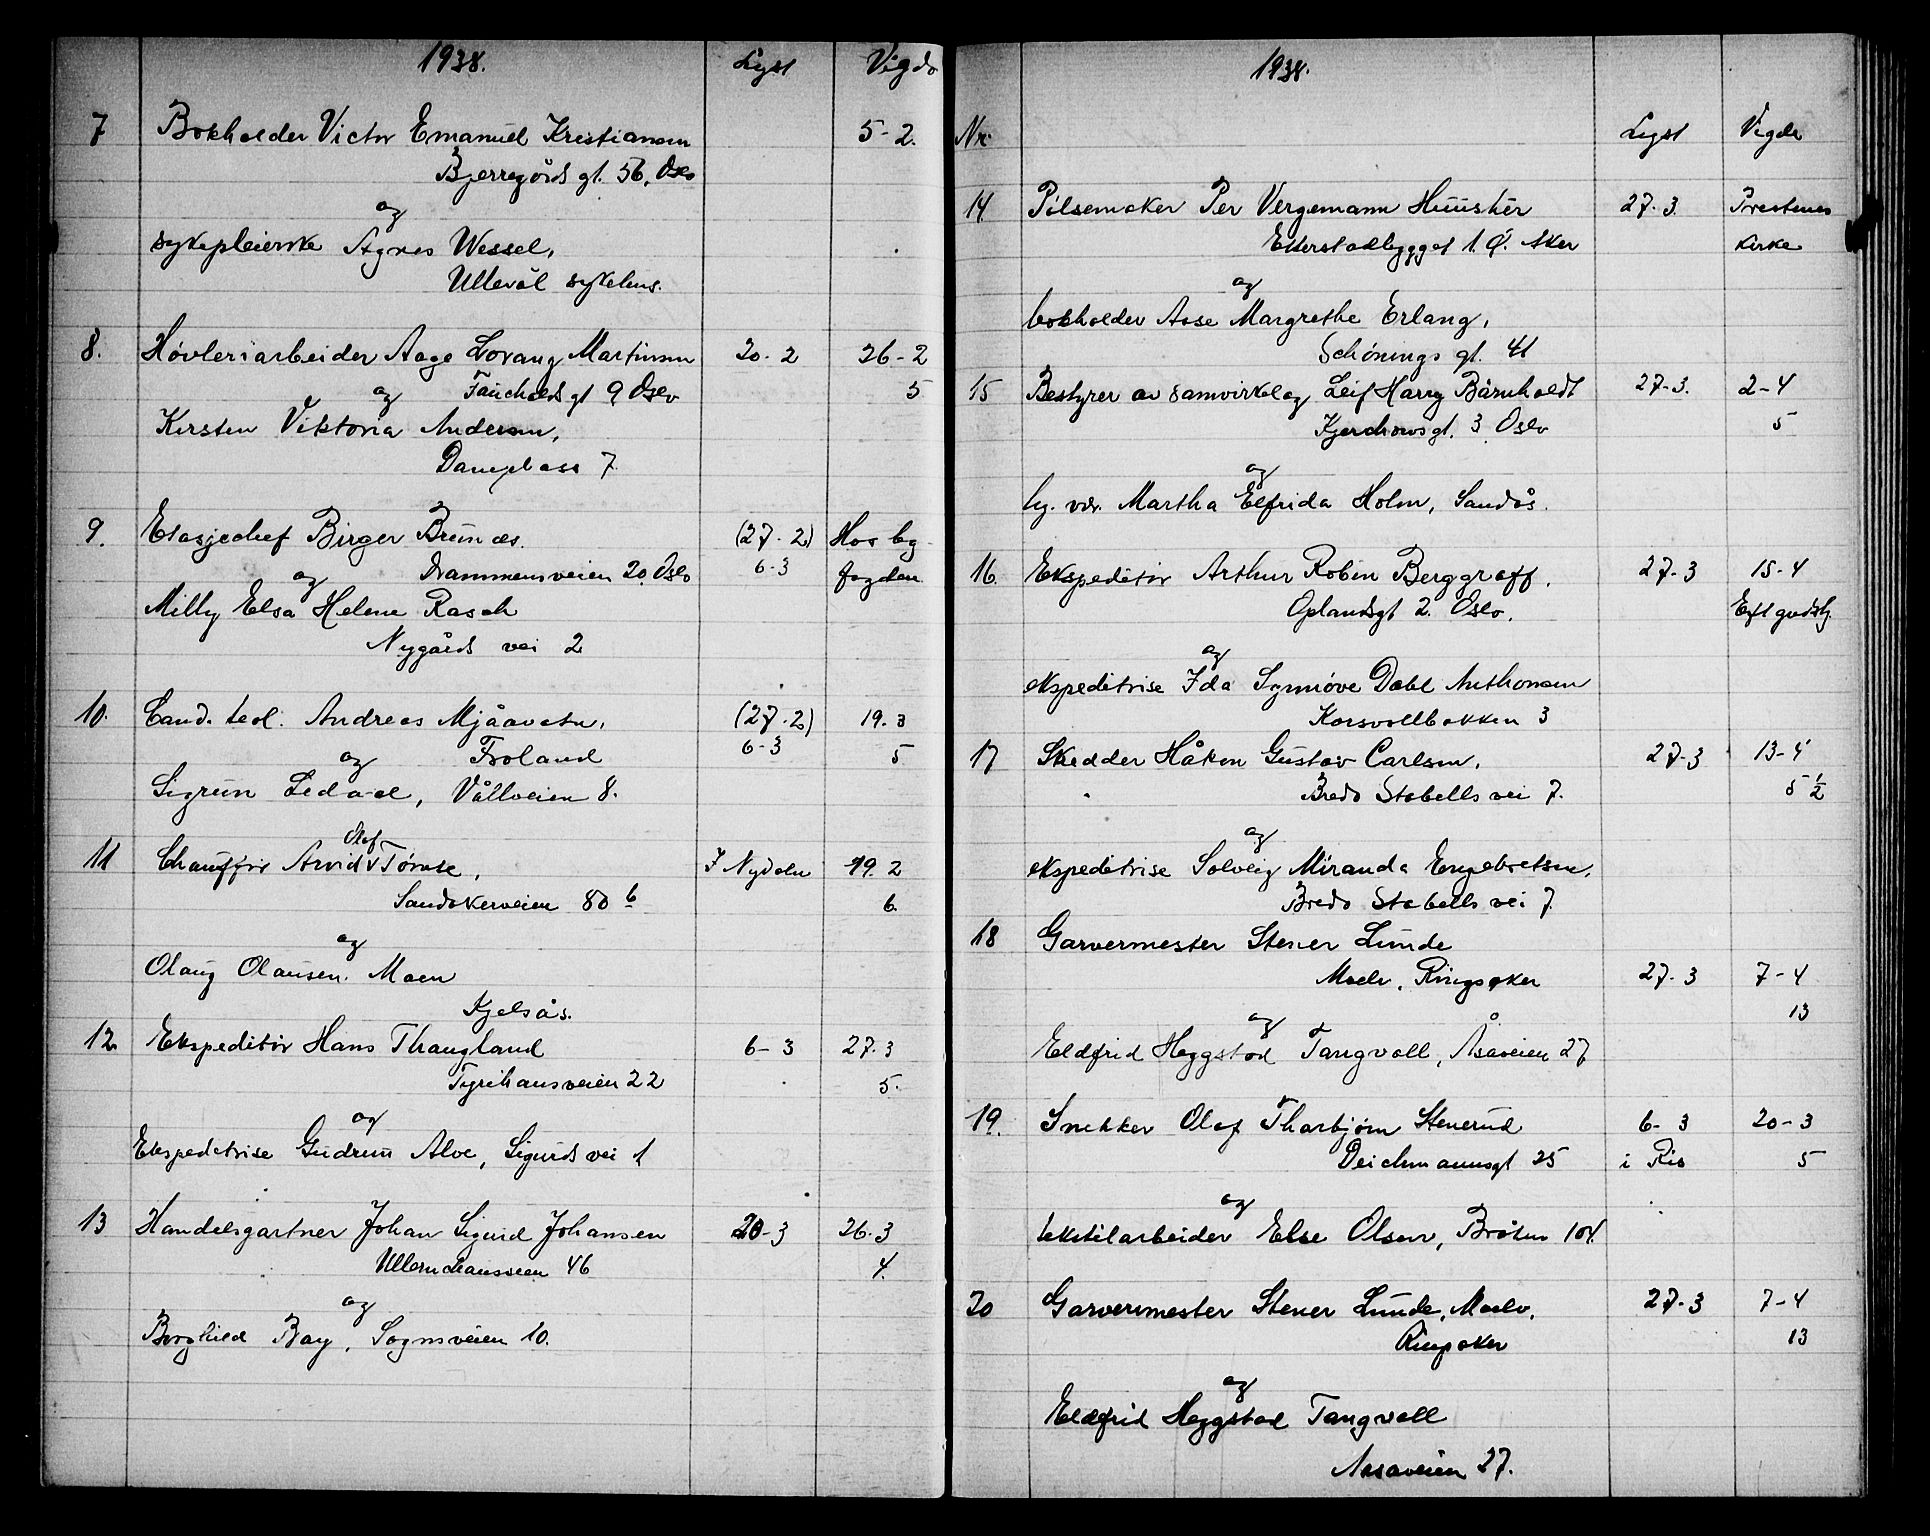 1938. Lyst Vigde
7 Bokholder Victor Emanuel Kristiansen 5-2.
Bjerregårds gt. 56, Oslo
og
sykepleierske Agnes Wessel,
Ullevål sykehus.
8. Høvleriarbeider Aage Lorang Martinsen 20-2 26-2
og Fauchalds gt 9 Oslo 5
Kirsten Viktoria Andersen,
Damplass 7.
9. Etasjechef Birger Brunæs. (27-2) Hos by
og Drammensveien 20. Oslo 6-3 fogden
Milly Elsa Helene Rasch
Nygårds vei 2
10. Cand. teol. Andreas Mjåavatn, (27.2) 19.3
og Froland 6-3 5
Sigrun Ledaal, Vållveien 8.
Olaf
11 Chauffør Arvid v Tørnse, I Nydalen 19.2
Sandakerveien 80 b 6.
og
Olaug Olausen. Moen
Kjelsås.
12. Ekspeditør Hans Thaugland 6-3 27.3
Tyrihansveien 22 5.
og
Ekspeditrise Gudrun Alve, Sigurds vei 1
13 Handelsgartner Johan Sigurd Johansen 20-3 26.3
Ullernchausseen 46 4.
og
Borghild Bay, Sognsveien 10.
1938.
Nr. Lyst Vigde
14 Pølsemaker Per Vergemann Huustér 27.3. Prestenes
Etterstadbygget 1. Ø. Aker kirke
og
bokholder Aase Margrethe Erlang,
Schönings gt. 41
15 Bestyrer av samvirkelag Leif Harry Bårnholdt 27-3. 2-4
Kjerchowsgt. 3 Oslo 5
og
Martha Elfrida Holm, Sandås.
16. Ekspeditør Arthur Robin Berggraff. 27-3 15-4
Oplandsgt 2. Oslo. Eft gudstj.
og
ekspeditrise Ida Synnøve Dahl Anthonsen
Korsvollbakken 3
17 Skredder Håkon Gustav Carlsen. 27-3 13-4
Bredo Stabells vei 7. 5 1/2
og
ekspeditrise Solveig Miranda Engebretsen.
Bredo Stabells vei 7.
18 Garvermester Stener Lunde
Moelv, Ringsaker 27-3 7-4
13
og
Eldfrid Heggstad Tangvoll, Åsaveien 27
19. Snekker Olaf Tharbjørn Stenerud 6-3 20-3
Deichmannsgt 25 i Ris 5
og
tekstilarbeider Else Olsen, Bråten 104.
20 Garvermester Stener Lunde, Moelv. 27-3 7-4
Ringsaker 13
og
Eldfrid Heggstad Tangvoll
Aasaveien 27.